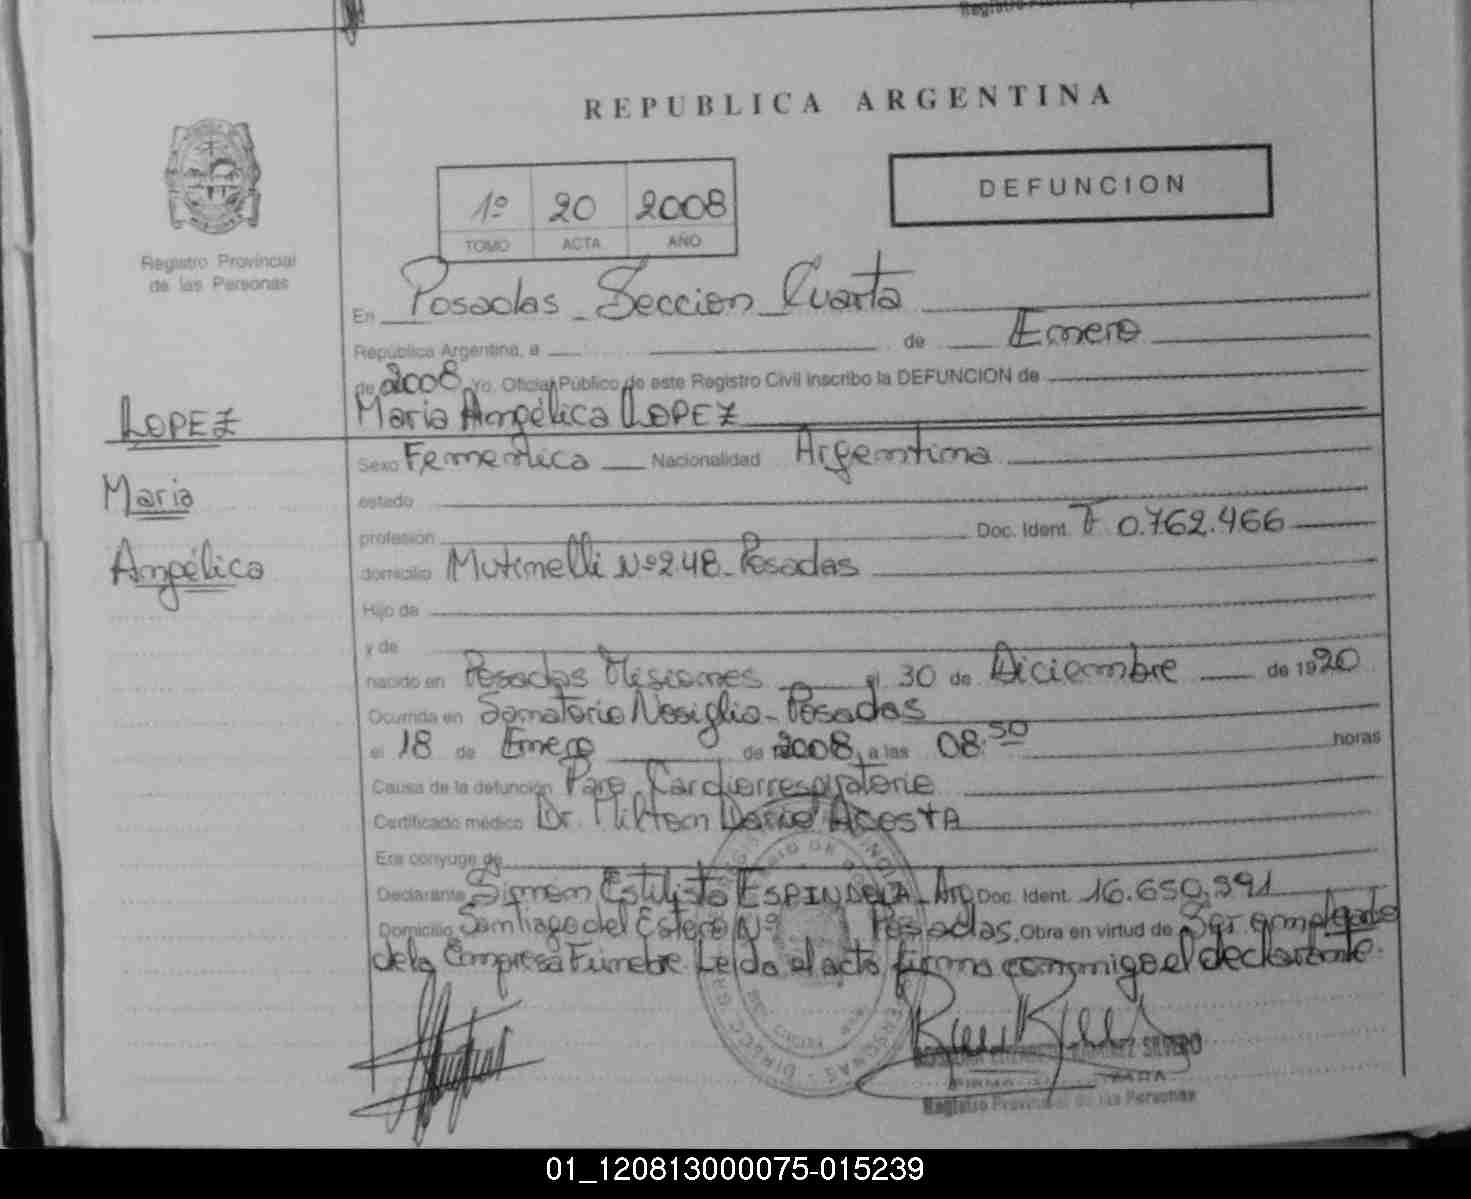 REPUBLICA ARGENTINA
DEFUNCION
1º 20 2008
TOMO ACTA AÑO
Registro Provincial
de las Personas
En Posadas Seccion Cuarta
República Argentina, a de Enero
de 2008 Yo, Oficial Público de este Registro Civil inscribo la DEFUNCION de
Maria Angélica LOPEZ
LOPEZ
Maria
Angélica
Sexo Femenica Nacionalidad Argentina
estado
profesión Doc. Ident. F 0.762.466
domicilio Mutinelli Nº 248 - Posadas
Hijo de
y de
nacido en Posadas Misiones el 30 de Diciembre de 1920
Ocurrida en Sanatorio Nosiglia - Posadas
el 18 de Enero de 2008, a las 08:50 horas
Causa de la defunción Paro Cardiorrespiratorio
Certificado médico Dr. Milton Dario ACOSTA
Era conyuge de
Declarante Simón Estilisto ESPINDOLA - Arg Doc. Ident. 16.650.391
Domicilio Santiago del Estero Nº Posadas. Obra en virtud de Ser empleado
de la Empresa Funebre. Leida el acta firma conmigo el declarante.
SILVERO
Registro Provincial de las Personas
01_120813000075-015239